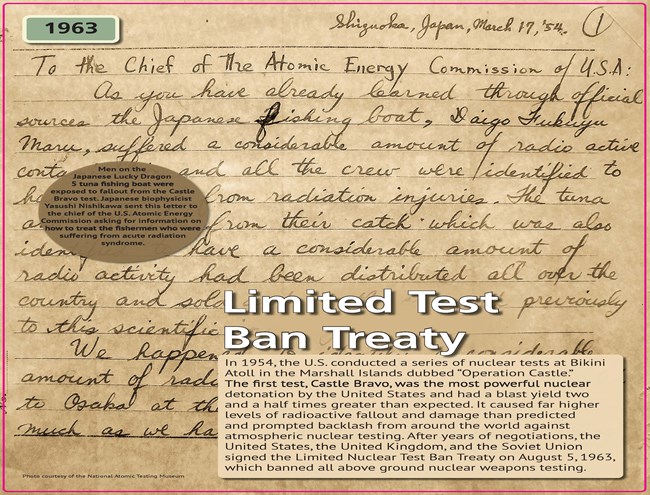 1963
Shizuoka, Japan, March 17, '54. 1
To the Chief of The Atomic Energy Commission of U.S.A:
As you have already learned through official
sources the Japanese fishing boat, Daigo Fukuryu
Maru, suffered a considerable amount of radio active
and all the crew were identified to
from radiation injuries. The tuna
from their catch which was also
have a considerable amount of
radio activity had been distributed all over the
country and previously
to this scientific
We happened considerable
amount of
to Osaka at
much as we
Men on the
Japanese Lucky Dragon
5 tuna fishing boat were
exposed to fallout from the Castle
Bravo test. Japanese biophysicist
Yasushi Nishikawa sent this letter to
the chief of the U.S. Atomic Energy
Commission asking for information on
how to treat the fishermen who were
suffering from acute radiation
syndrome.
Limited Test
Ban Treaty
In 1954, the U.S. conducted a series of nuclear tests at Bikini
Atoll in the Marshall Islands dubbed “Operation Castle.”
The first test, Castle Bravo, was the most powerful nuclear
detonation by the United States and had a blast yield two
and a half times greater than expected. It caused far higher
levels of radioactive fallout and damage than predicted
and prompted backlash from around the world against
atmospheric nuclear testing. After years of negotiations, the
United States, the United Kingdom, and the Soviet Union
signed the Limited Nuclear Test Ban Treaty on August 5, 1963,
which banned all above ground nuclear weapons testing.
Photo courtesy of the National Atomic Testing Museum